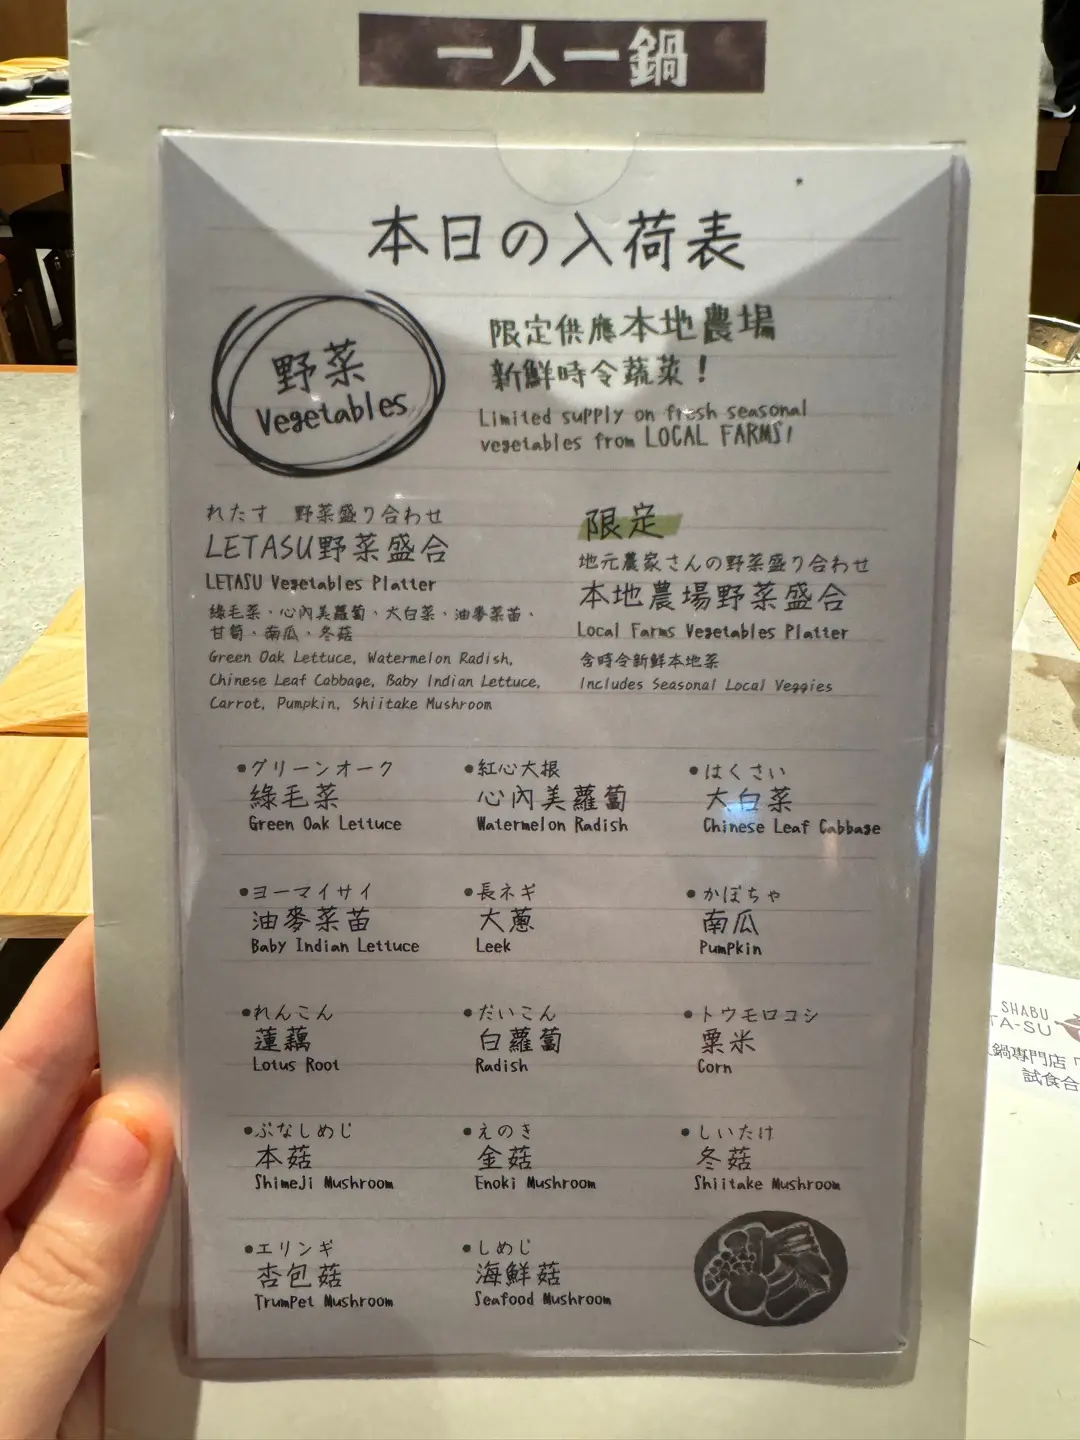 一人一鍋
本日の入荷表
野菜
Vegetables
限定供應本地農場
新鮮時令蔬菜！
Limited supply on fresh seasonal
vegetables from LOCAL FARMS!
れたす 野菜盛り合わせ
LETASU野菜盛合
LETASU Vegetables Platter
綠毛菜、心內美蘿蔔、大白菜、油麥菜苗、
甘筍、南瓜、冬菇
Green Oak Lettuce, Watermelon Radish,
Chinese Leaf Cabbage, Baby Indian Lettuce,
Carrot, Pumpkin, Shiitake Mushroom
限定
地元農家さんの野菜盛り合わせ
本地農場野菜盛合
Local Farms Vegetables Platter
含時令新鮮本地菜
Includes Seasonal Local Veggies
•グリーンオーク
綠毛菜
Green Oak Lettuce
•紅心大根
心內美蘿蔔
Watermelon Radish
•はくさい
大白菜
Chinese Leaf Cabbage
•ヨーマイサイ
油麥菜苗
Baby Indian Lettuce
•長ネギ
大蔥
Leek
•かぼちゃ
南瓜
Pumpkin
•れんこん
蓮藕
Lotus Root
•だいこん
白蘿蔔
Radish
•トウモロコシ
粟米
Corn
•ぶなしめじ
本菇
Shimeji Mushroom
•えのき
金菇
Enoki Mushroom
•しいたけ
冬菇
Shiitake Mushroom
•エリンギ
杏包菇
Trumpet Mushroom
•しめじ
海鮮菇
Seafood Mushroom
SHABU
TA-SU
鍋專門店「
試食合